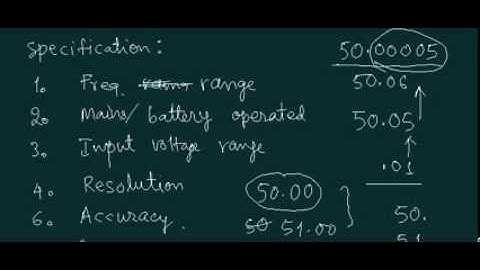 Specification:
1. Freq. range
2. Mains/battery operated
3. Input voltage range
4. Resolution
6. Accuracy.
50.00005
50.06
50.05
.01
50.00
50 51.00
50.
51